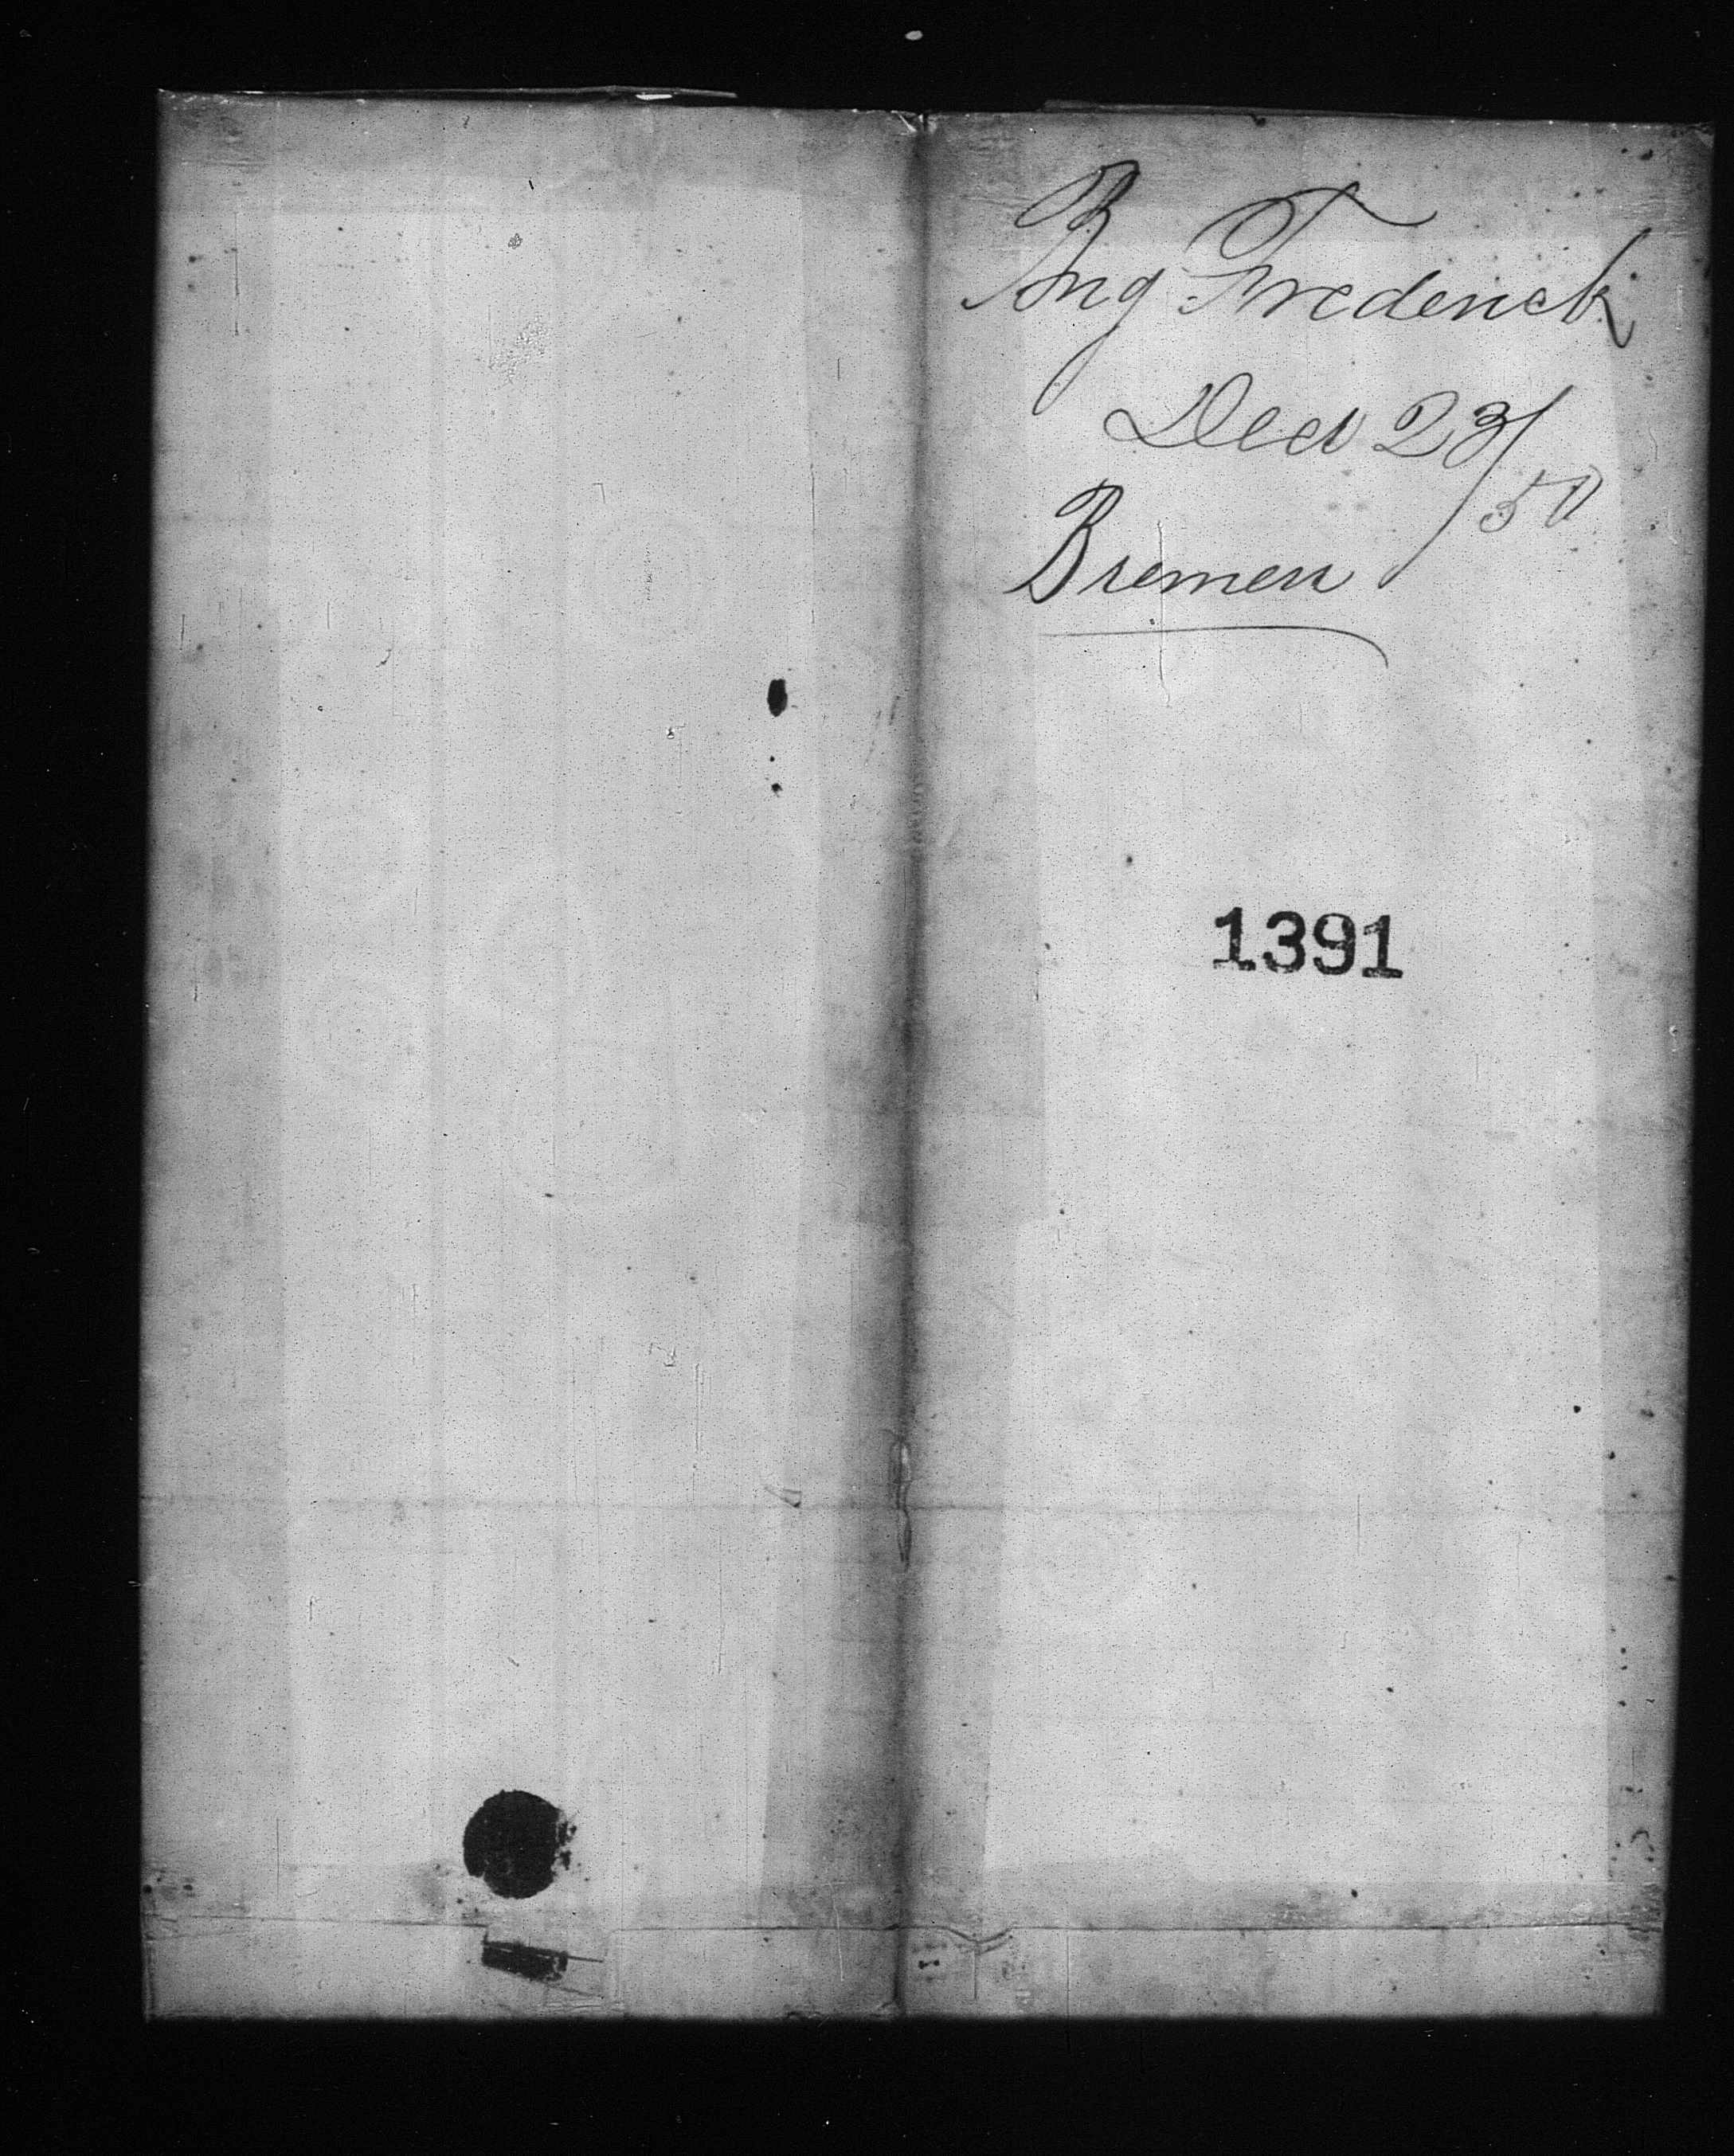 Brig Frederick
Decr 23/50
Bremen
1391